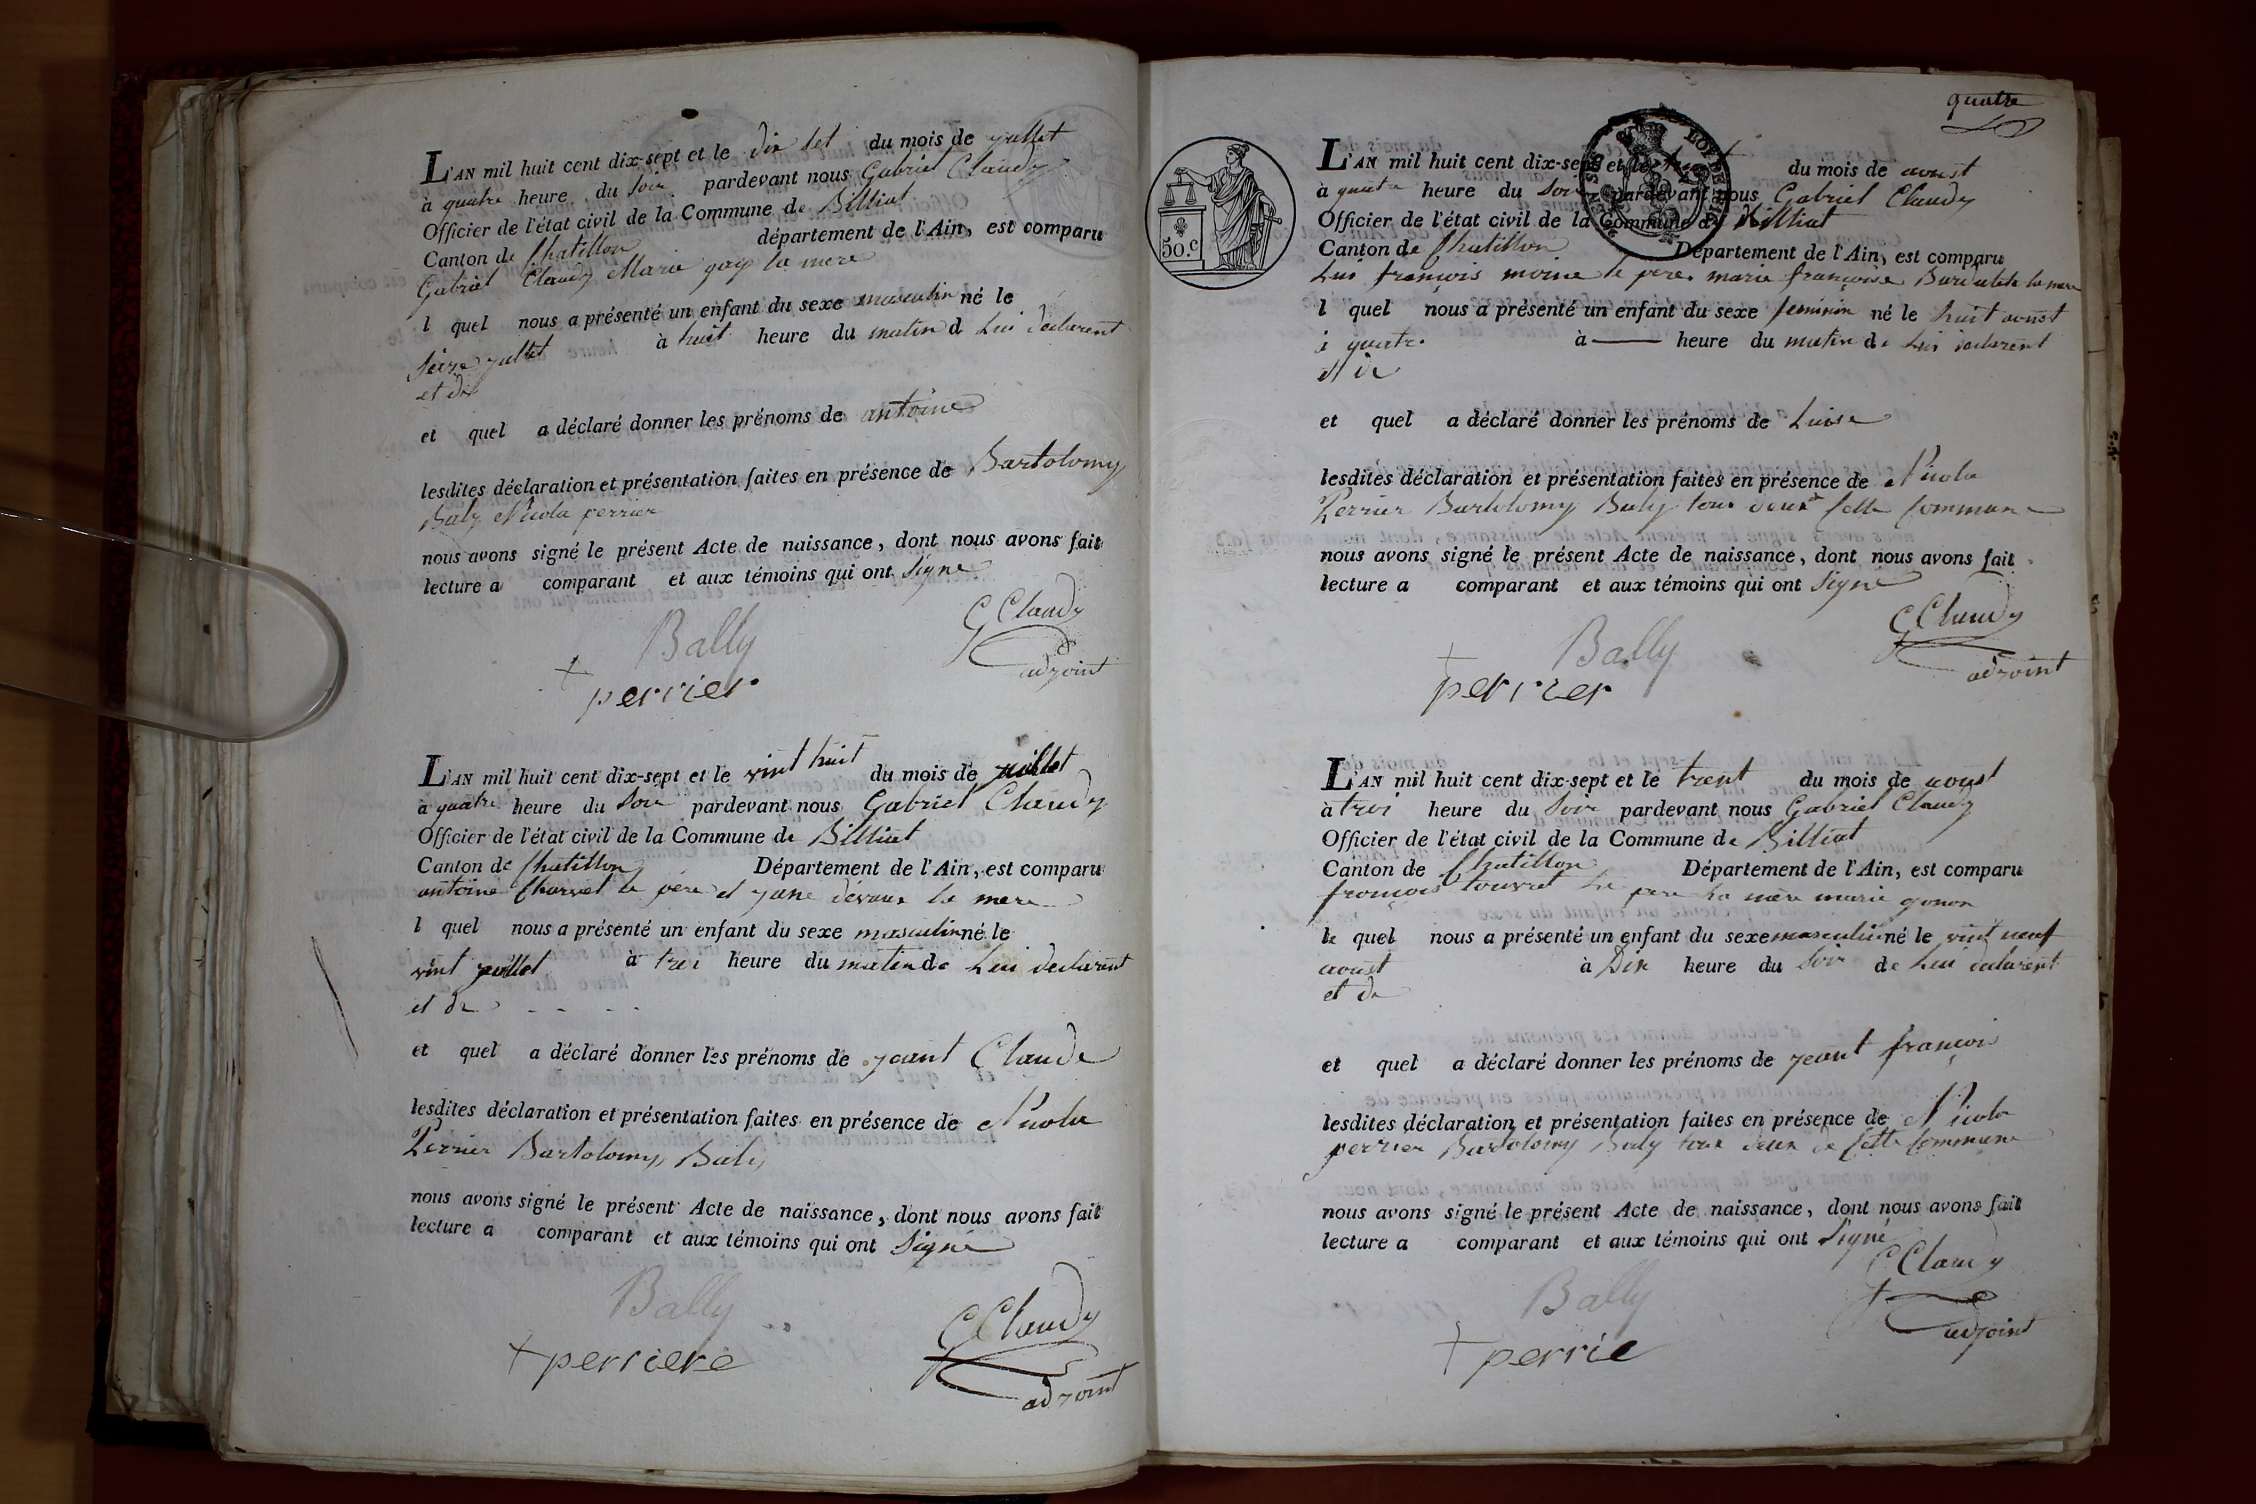 L'AN mil huit cent dix-sept et le dix set du mois de jullet
à quatre heure du soir pardevant nous Gabriel Claudy
Officier de l'état civil de la Commune de Billiat
Canton de Chatillon département de l'Ain, est comparu
Gabriel Claudy Marie gay la mere
l quel nous a présenté un enfant du sexe masculin né le
seize jullet à huit heure du matin d Lui declarent
et de
et quel a déclaré donner les prénoms de antoine
lesdites déclaration et présentation faites en présence de Bartolomy
Baly Nicola perrier
nous avons signé le présent Acte de naissance, dont nous avons fait
lecture a comparant et aux témoins qui ont signe
Bally
G Claudy
adjoint
+ perrier
L'AN mil huit cent dix-sept et le vint huit du mois de juillet
à quatre heure du soir pardevant nous Gabriel Claudy
Officier de l'état civil de la Commune de Billiat
Canton de Chatillon Département de l'Ain, est comparu
antoine Charvet le père et jane devaux la mere
l quel nous a présenté un enfant du sexe masculin né le
vint juillet à troi heure du matin de Lui declarent
et de - - - -
et quel a déclaré donner les prénoms de jeant Claude
lesdites déclaration et présentation faites en présence de Nicola
Perrier Bartolomy Baly
nous avons signé le présent Acte de naissance, dont nous avons fait
lecture a comparant et aux témoins qui ont signé
Bally
G Claudy
adjoint
+ perriere
quatre
50.c
L'AN mil huit cent dix-sept et le du mois de aoust
à quatre heure du soir pardevant nous Gabriel Claudy
Officier de l'état civil de la Commune de Billiat
Canton de Chatillon Département de l'Ain, est comparu
Lui françois moine le pere marie françoise la mere
l quel nous a présenté un enfant du sexe feminin né le huit aoust
à quatre à — heure du matin de Lui declarent
et de
et quel a déclaré donner les prénoms de Luise
lesdites déclaration et présentation faites en présence de Nicola
Perrier Bartolomy Baly tous deux de sette Commune
nous avons signé le présent Acte de naissance, dont nous avons fait
lecture a comparant et aux témoins qui ont signe
G Claudy
Bally
adjoint
+ perrier
L'AN mil huit cent dix-sept et le trent du mois de aoust
à troi heure du soir pardevant nous Gabriel Claudy
Officier de l'état civil de la Commune de Billiat
Canton de Chatillon Département de l'Ain, est comparu
françois touvret Le pere La mere marie gonon
le quel nous a présenté un enfant du sexe masculin né le vint neuf
aoust à Dix heure du soir de Lui declarent
et de
et quel a déclaré donner les prénoms de jeant françois
lesdites déclaration et présentation faites en présence de Nicola
perrier Bartolomy Baly tous deux de sette Commune
nous avons signé le présent Acte de naissance, dont nous avons fait
lecture a comparant et aux témoins qui ont signé
G Claudy
Bally
adjoint
+ perrie